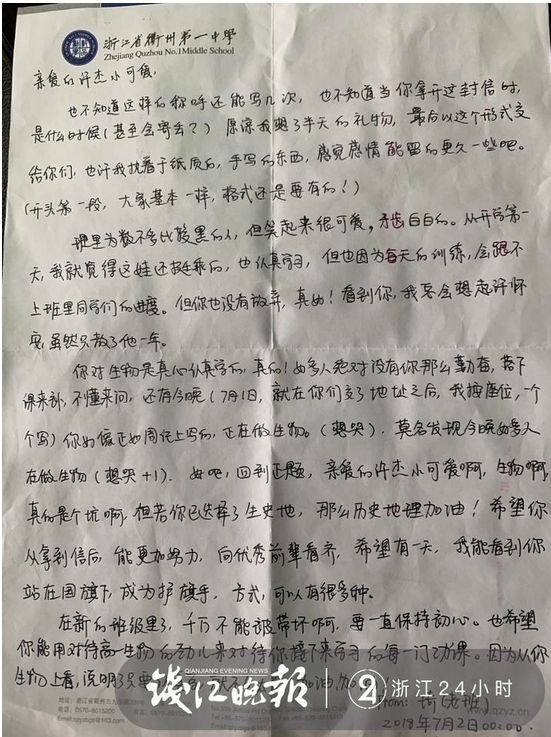 浙江省衢州第一中学
Zhejiang Quzhou No.1Middle School
亲爱的许杰小可爱，
也不知道这样的称呼还能写几次，也不知道当你拿开这封信时，
是什么时候（甚至会寄丢？）原谅我想了半天的礼物，最后以这个形式交
给你们，也许我执着于纸质的，手写的东西，感觉感情能留的更久一些吧。
（开头第一段，大家基本一样，格式还是要有的！）
班里为数不多比较黑的人，但笑起来很可爱，牙齿白白的。从开学第一
天，我就觉得这娃还挺乖的，也认真学习，但也因为每天的训练，会跟不
上班里同学们的进度。但你也没有放弃，真好！看到你，我总会想起许怀
安，虽然只教了他一年。
你对生物是真心认真学的，真的！好多人绝对没有你那么勤奋，落下
课来补，不懂来问，还有今晚（7月1日，就在你们交了地址之后，我按座位，一个
个写）你好像正如周记上写的，正在做生物。（想哭）．莫名发现今晚好多人
在做生物（想哭+1）．好吧，回到正题，亲爱的许杰小可爱啊，生物啊，
真的是个坑啊，但若你已选择了生史地，那么历史地理加油！希望你
从拿到信后，能更加努力，向优秀前辈看齐，希望有一天，我能看到你
站在国旗下，成为护旗手，方式，可以有很多种．
在新的班级里了，千万不能被带坏啊，要一直保持初心。也希望
你能用对待高一生物的劲儿来对待你接下来学习的每一门功课。因为从你
生物上看，说明了只要
QIANJIANG EVENING NEWS
钱江晚报
24 浙江24小时
from:
2019年7月2日00:00.